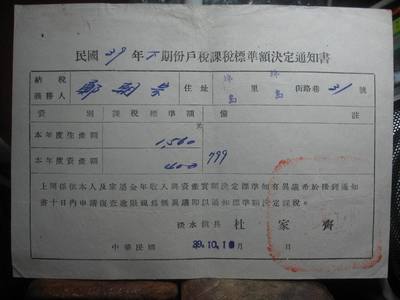 民國39年下期份戶稅課稅標準額決定通知書
納稅義務人 鄭 住址 里 街路巷 31號
資別 課稅標準額 備註
本年度生產額 1,560元
本年度資產額 400 799
上開係依本人及家屬全年收入與資產實額決定標準如有異議希於接到通知
書十日內申請復查逾限視為無異議即以通知標準額決定課稅。
淡水鎮長 杜家齊
中華民國 39.10.10 月 日